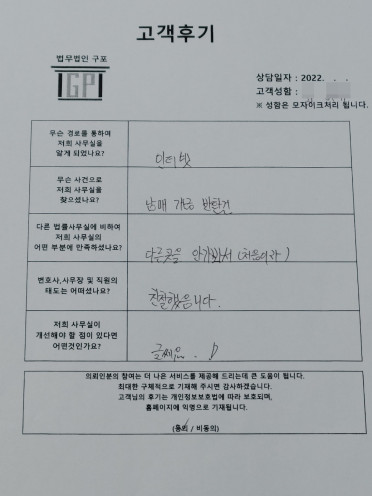 고객후기
법무법인 구포
IGPI
상담일자 : 2022. . .
고객성함 :
※ 성함은 모자이크처리 됩니다.
무슨 경로를 통하여
저희 사무실을
알게 되었나요?
인터넷
무슨 사건으로
저희 사무실을
찾으셨나요?
남매 개금 반환건
다른 법률사무실에 비하여
저희 사무실의
어떤 부분에 만족하셨나요?
다른곳을 안가봐서 (처음이라)
변호사,사무장 및 직원의
태도는 어떠셨나요?
친절했습니다.
저희 사무실이
개선해야 할 점이 있다면
어떤것인가요?
글쎄요.
의뢰인분의 참여는 더 나은 서비스를 제공해 드리는데 큰 도움이 됩니다.
최대한 구체적으로 기재해 주시면 감사하겠습니다.
고객님의 후기는 개인정보보호법에 따라 보호되며,
홈페이지에 익명으로 기재됩니다.
(동의 / 비동의)